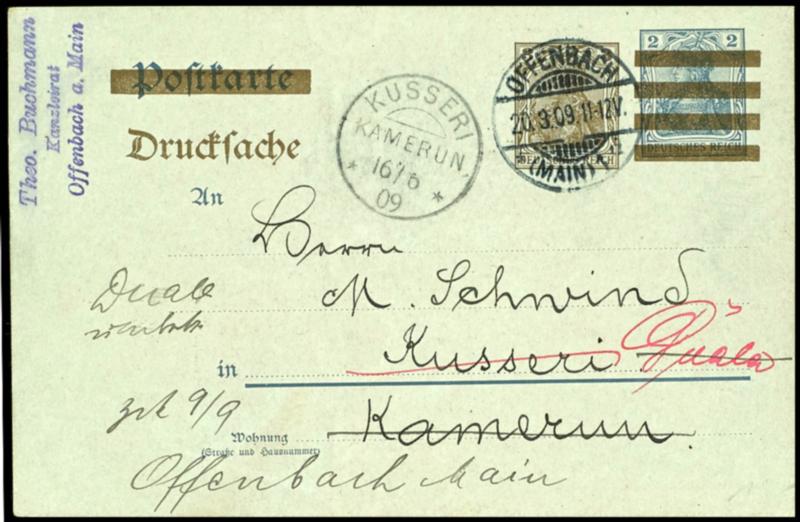 Theo. Buchmann
Kanzleirat
Offenbach a. Main
Postkarte
Drucksache
KUSSERI
KAMERUN.
* 16/6 *
09
OFFENBACH
20.3.09.11-12V.
(MAIN)
DEUTSCHES REICH
2
2
DEUTSCHES REICH
An
Herrn
M. Schwind
Duala
in
Kusseri Duala
zrk 9/9
Kamerun.
Wohnung
(Straße und Hausnummer)
Offenbach Main